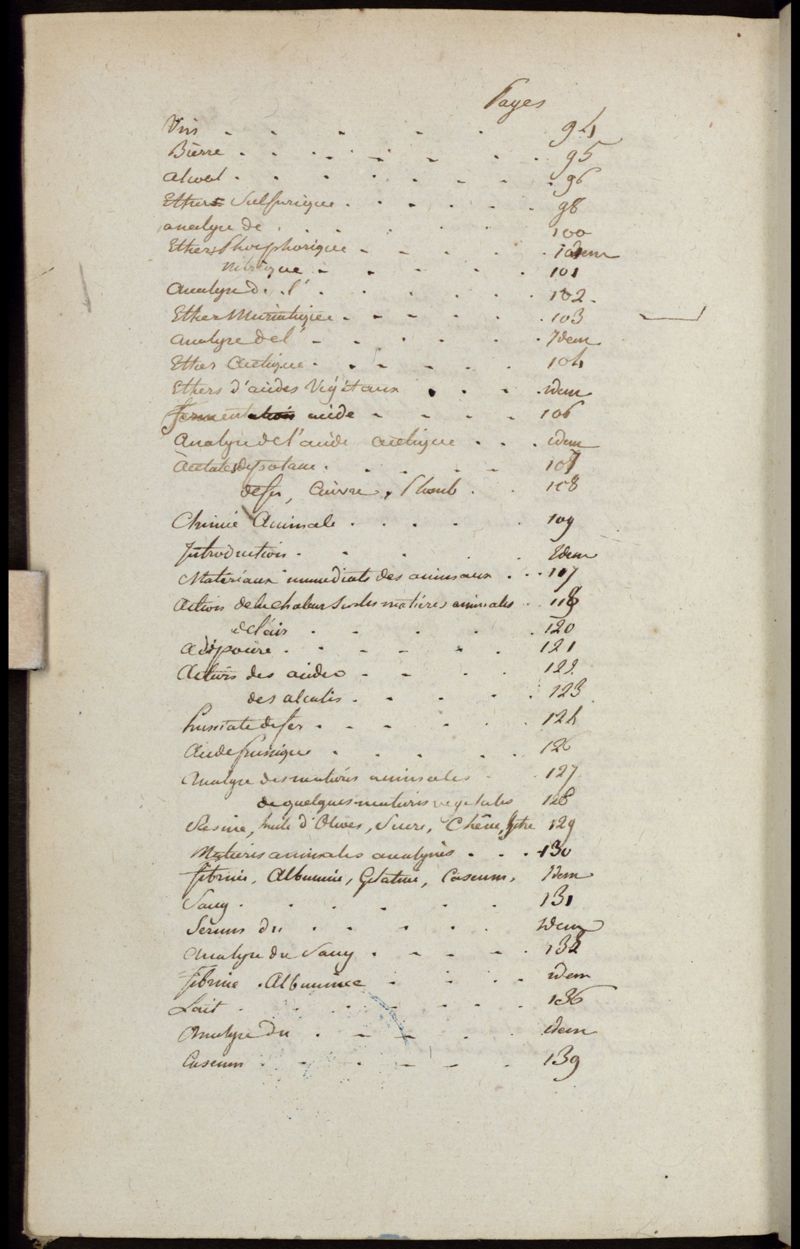 Pages
Vins - - - - - 94
Bierre - - - - - 95
alcool - - - - - 96
Ether Sulfurique - - - - 98
analyse de - - - - 100
Ether Phosphorique - - - - idem
Nitrique - - - - 101
analyse de l' - - - - 102
Ether Muriatique - - - - 103
analyse de l' - - - - Idem
Ether acetique - - - - 104
Ethers d'acides Végétaux - - - idem
fermentation acide - - - - 106
analyse de l'acide acetique - - - idem
acétates de potasse - - - - 107
de fer, Cuivre, Plomb - - 108
Chimie Animale - - - - 109
Introduction - - - - Idem
Materiaux immediats des animaux - - - 117
Action de la chaleur sur les matières animales - 118
de l'air - - - - 120
adipocire - - - - 121
Action des acides - - - - 122
des alcalis - - - - 123
Prussiate de fer - - - - 124
acide prussique - - - - 126
analyse des matières animales - 127
de quelques matières végétales 128
Résine, huile d'Olives, Sucre, Chêne, hêtre 129
Matieres animales analysées - - - 130
fibrine, Albumine, Gelatine, Caseum, Idem
Sang - - - - 131
Sérum du - - - - idem
analyse du Sang - - - - 132
fibrine, Albumine - - - - idem
Lait - - - - 136
analyse du - - - - idem
Caseum - - - - 139